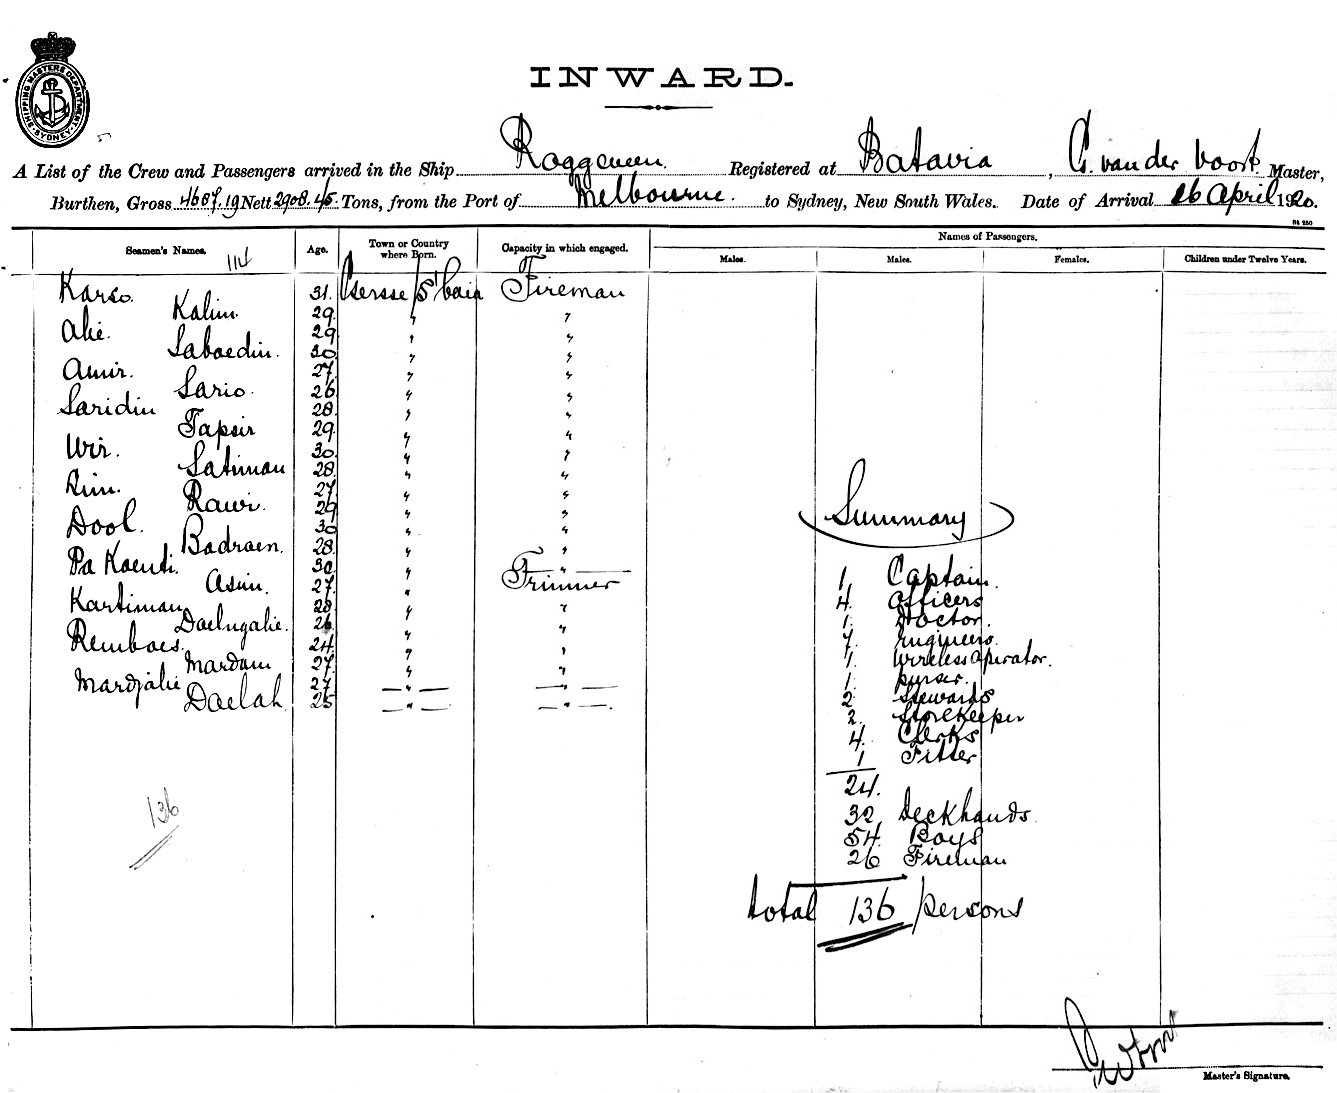 SHIPPING MASTERS DEPARTMENT
SYDNEY
INWARD.
A List of the Crew and Passengers arrived in the Ship Roggeveen. Registered at Batavia, G. van der Voort. Master,
Burthen, Gross 4687.19 Nett 2908.45 Tons, from the Port of Melbourne. to Sydney, New South Wales. Date of Arrival 26 April 1920.
Seamen's Names. Age. Town or Country where Born. Capacity in which engaged. Names of Passengers.
Males. Males. Females. Children under Twelve Years.
114
Karso. 31. S'baia Fireman
Kalim. 29. " "
Alie. 29 " "
Saboedin. 30 " "
Amir. 27. " "
Sario. 26 " "
Saridin 28. " "
Tapsir 29. " "
Wir. 30. " "
Satiman 28. " "
Rim. 27. " "
Rawi. 29 " "
Dool. 30 " "
Badraen. 28. " "
Pa Koenti. 30 " "
Asim. 27. " Trimmer
Kartiman 28 " "
Daelngalie. 26 " "
Remboes. 24. " "
Mardam 27. " "
Mardjalie 27 " "
Daelah. 25 " "
136
Summary
1, Captain.
4. Officers
1. Doctor.
7. Engineers.
1. Wireless Operator.
1. purser.
2 Stewards
2. Storekeeper
4. Clerks
1 Fitter
24.
32 Deckhands
54. Boys
26 Fireman
total 136 persons
Master's Signature.